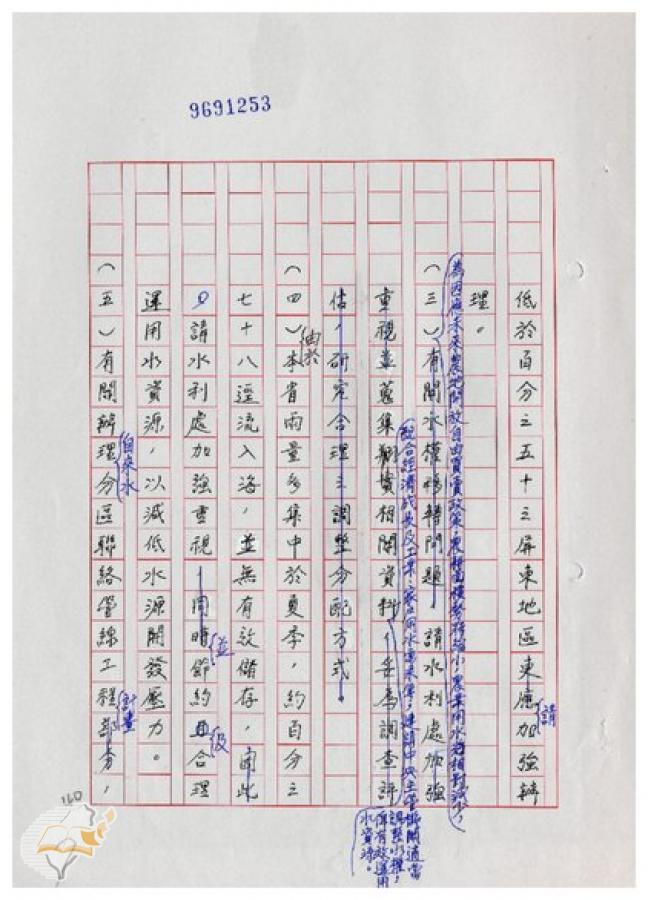 9691253
低於百分之五十之屏東地區更應加強辦
請
理。
為因應未來農地開放自由買賣政策,農耕面積將縮小,農業用水將相對減少,
(三)有關水權移轉問題,請水利處加強
配合經濟成長及工業、家戶用水需求
重視並蒐集相關資料,妥為調查評
估,研究合理之調整分配方式。
適當
調整水權,
俾有效運用
水資源。
由於
(四)本省雨量多集中於夏季,約百分之
七十八逕流入海,並無有效儲存,因此
請水利處加強重視用時節約且合理
並
及
運用水資源,以減低水源開發壓力。
自來水
(五)有關辦理分區聯絡管線工程部分,
計畫
160